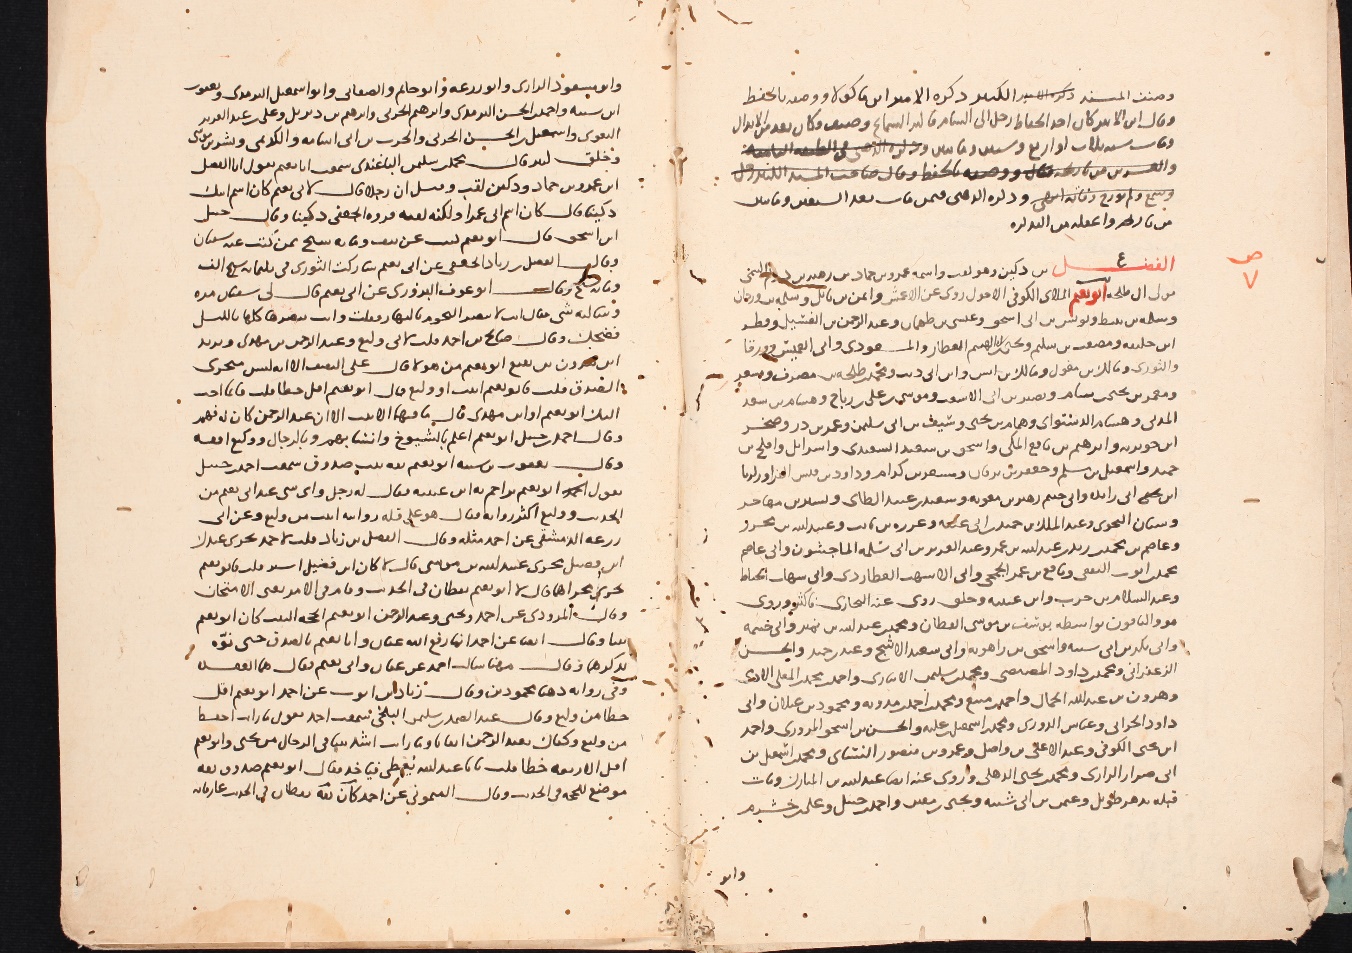 وصنف المسند الكبير ذكره الامير ابن ماكولا ووصفه بالحفظ
وقال ابن الاثير كان احد الحفاظ رحل الى الشام وصنف وكان يعد من الابدال
ومات سنة ثلاث او اربع
وذكره الذهبي فيمن مات بعد السبعين ومايتين
من تاريخه واغفله من التذكرة
ص
٧
الفضل بن دكين وهو لقب واسمه عمرو بن حماد بن زهير بن درهم التيمي
مولى ال طلحة ابو نعيم الملائي الكوفي الاحول روى عن الاعمش وايمن بن نابل وسلمة بن وردان
وسلمة بن نبيط ويونس بن ابي اسحق وعيسى بن طهمان وعبد الرحمن بن الغسيل وفطر
ابن خليفة ومصعب بن سليم ويحيى بن ابي الهيثم العطار والمسعودي وابي العميس وورقا
والثوري ومالك بن مغول ومالك بن انس وابن ابي ذيب ومحمد بن طلحة بن مصرف ومسعر
ومعمر بن يحيى بن سام ونصير بن ابي الاشعث وموسى بن علي بن رباح وهشام بن سعد
المدني وهشام الدستواي وهمام بن يحيى وسيف بن ابي سليمن وعمر بن ذر وصخر
ابن جويرية وابرهيم بن نافع المكي واسحق بن سعيد السعيدي واسرائل وافلح بن
حميد واسمعيل بن مسلم وجعفر بن برقان ومسعر بن كدام وداود بن قيس الفرا وزكريا
ابن ابي زايدة وابي خيثمة زهير بن معوية وسعيد بن عبيد الطاي وبشير بن مهاجر
وشيبان النحوي وعبد الملك بن حميد بن ابي غنية وعزرة بن ثابت وعبيد الله بن محرز
وعاصم بن محمد بن زيد بن عبد الله بن عمر وعبد العزيز بن ابي سلمة الماجشون وابي عاصم
محمد بن ايوب الثقفي ونافع بن عمر الجمحي وابي الاشهب العطاردي وابي شهاب الحناط
وعبد السلام بن حرب وابن عيينة وخلق روى عنه البخاري فاكثر وروى
هو والباقون بواسطة يوسف بن موسى القطان ومحمد بن عبد الله بن نمير وابي خيثمة
وابي بكر بن ابي شيبة واسحق بن راهويه وابي سعيد الاشج وعبد بن حميد والحسن
الزعفراني ومحمد بن داود المصيصي ومحمد بن سليمن الانباري واحمد بن محمد بن المعلى الادمي
وهرون بن عبد الله الحمال واحمد بن منيع ومحمد بن احمد بن مدويه ومحمود بن غيلان وابي
داود الحراني وعباس الدوري ومحمد بن اسمعيل بن علية والحسن بن اسحق المروزي واحمد
ابن يحيى الكوفي وعبد الاعلى بن واصل وعمرو بن منصور النسائي ومحمد بن اسمعيل بن
ابي ضرار الرازي ومحمد بن يحيى الذهلي وروى عنه ايضا عبد الله بن المبارك ومات
قبله بدهر طويل وعثمن بن ابي شيبة ويحيى بن معين واحمد بن حنبل وعلي بن خشرم
وابو
وابو مسعود الرازي وابو زرعة وابو حاتم والصغاني وابو اسمعيل الترمذي ويعقوب
ابن شيبة واحمد بن الحسن الترمذي وابرهيم الحربي وابرهيم بن ديزيل وعلي بن عبد العزيز
البغوي واسمعيل والحرث بن ابي اسامة والكديمي وبشر بن موسى
وخلق كثير قال محمد بن سليمن الباغندي سمعت ابا نعيم يقول انا الفضل
ابن عمرو بن حماد ودكين لقب وقيل ان رجلا قال لابي نعيم كان اسم ابيك
دكينا قال كان اسم ابي عمرا ولكنه لقبه فروة الجعفي دكينا وقال حنبل
ابن اسحق قال ابو نعيم كتبت عن نيف ومائة شيخ ممن كتب عنه سفيان
وقال الفضل بن زياد الجعفي عن ابي نعيم شاركت الثوري في ثلثمائة شيخ
وقال ابو عوف البزوري عن ابي نعيم قال لي سفيان مرة
وسالته عن شي فقال انت لا تبصر النجوم بالنهار فقلت وانت تبصرها كلها بالليل
فضحك وقال صالح بن احمد قلت لابي وكيع وعبد الرحمن بن مهدي ويزيد
ابن هرون اين يقع ابو نعيم من هولا قال على النصف الا انه كيس يتحرى
الصدق قلت فابو نعيم اثبت او وكيع قال ابو نعيم اقل خطا قلت فايما احب
اليك ابو نعيم او ابن مهدي قال ما فيهما الا ثبت الا ان عبد الرحمن كان له فهم
وقال احمد بن حنبل ابو نعيم اعلم بالشيوخ وانسابهم وبالرجال ووكيع افقه
وقال يعقوب بن شيبة ابو نعيم ثقة ثبت صدوق سمعت احمد بن حنبل
يقول ابو نعيم يزاحم به ابن عيينة فقال له رجل واي شي عند ابي نعيم من
الحديث ووكيع اكثر رواية فقال هو على قلة روايته اثبت من وكيع وعن ابي
زرعة الدمشقي عن احمد مثله وقال الفضل بن زياد قلت لاحمد يجري عندك
ابن فضيل مجرى عبيد الله بن موسى قال لا كان ابن فضيل استر قلت فابو نعيم
يجري مجراهما قال لا ابو نعيم يقظان في الحديث وقام في الامر يعني الامتحان
وقال المروذي عن احمد ويحيى وعبد الرحمن ابو نعيم الحجة الثبت كان ابو نعيم
ثبتا وقال ايضا عن احمد انما رفع الله عفان وابا نعيم بالصدق حتى نوه
بذكرهما وقال مهنا سالت احمد عن عفان وابي نعيم فقال هما العقدة
وفي رواية ذهبا محمودين وقال زياد بن ايوب عن احمد ابو نعيم اقل
خطا من وكيع وقال عبد الصمد بن سليمن البلخي سمعت احمد يقول ما رايت احفظ
من وكيع وكفاك بعبد الرحمن اتقانا وما رايت اشد تثبتا في الرجال من يحيى وابو نعيم
اقل الاربعة خطا قلت يا ابا عبد الله يعطى فياخذ فقال ابو نعيم صدوق ثقة
موضع للحجة في الحديث وقال الميموني عن احمد كان ثقة يقظان في الحديث عارفا به